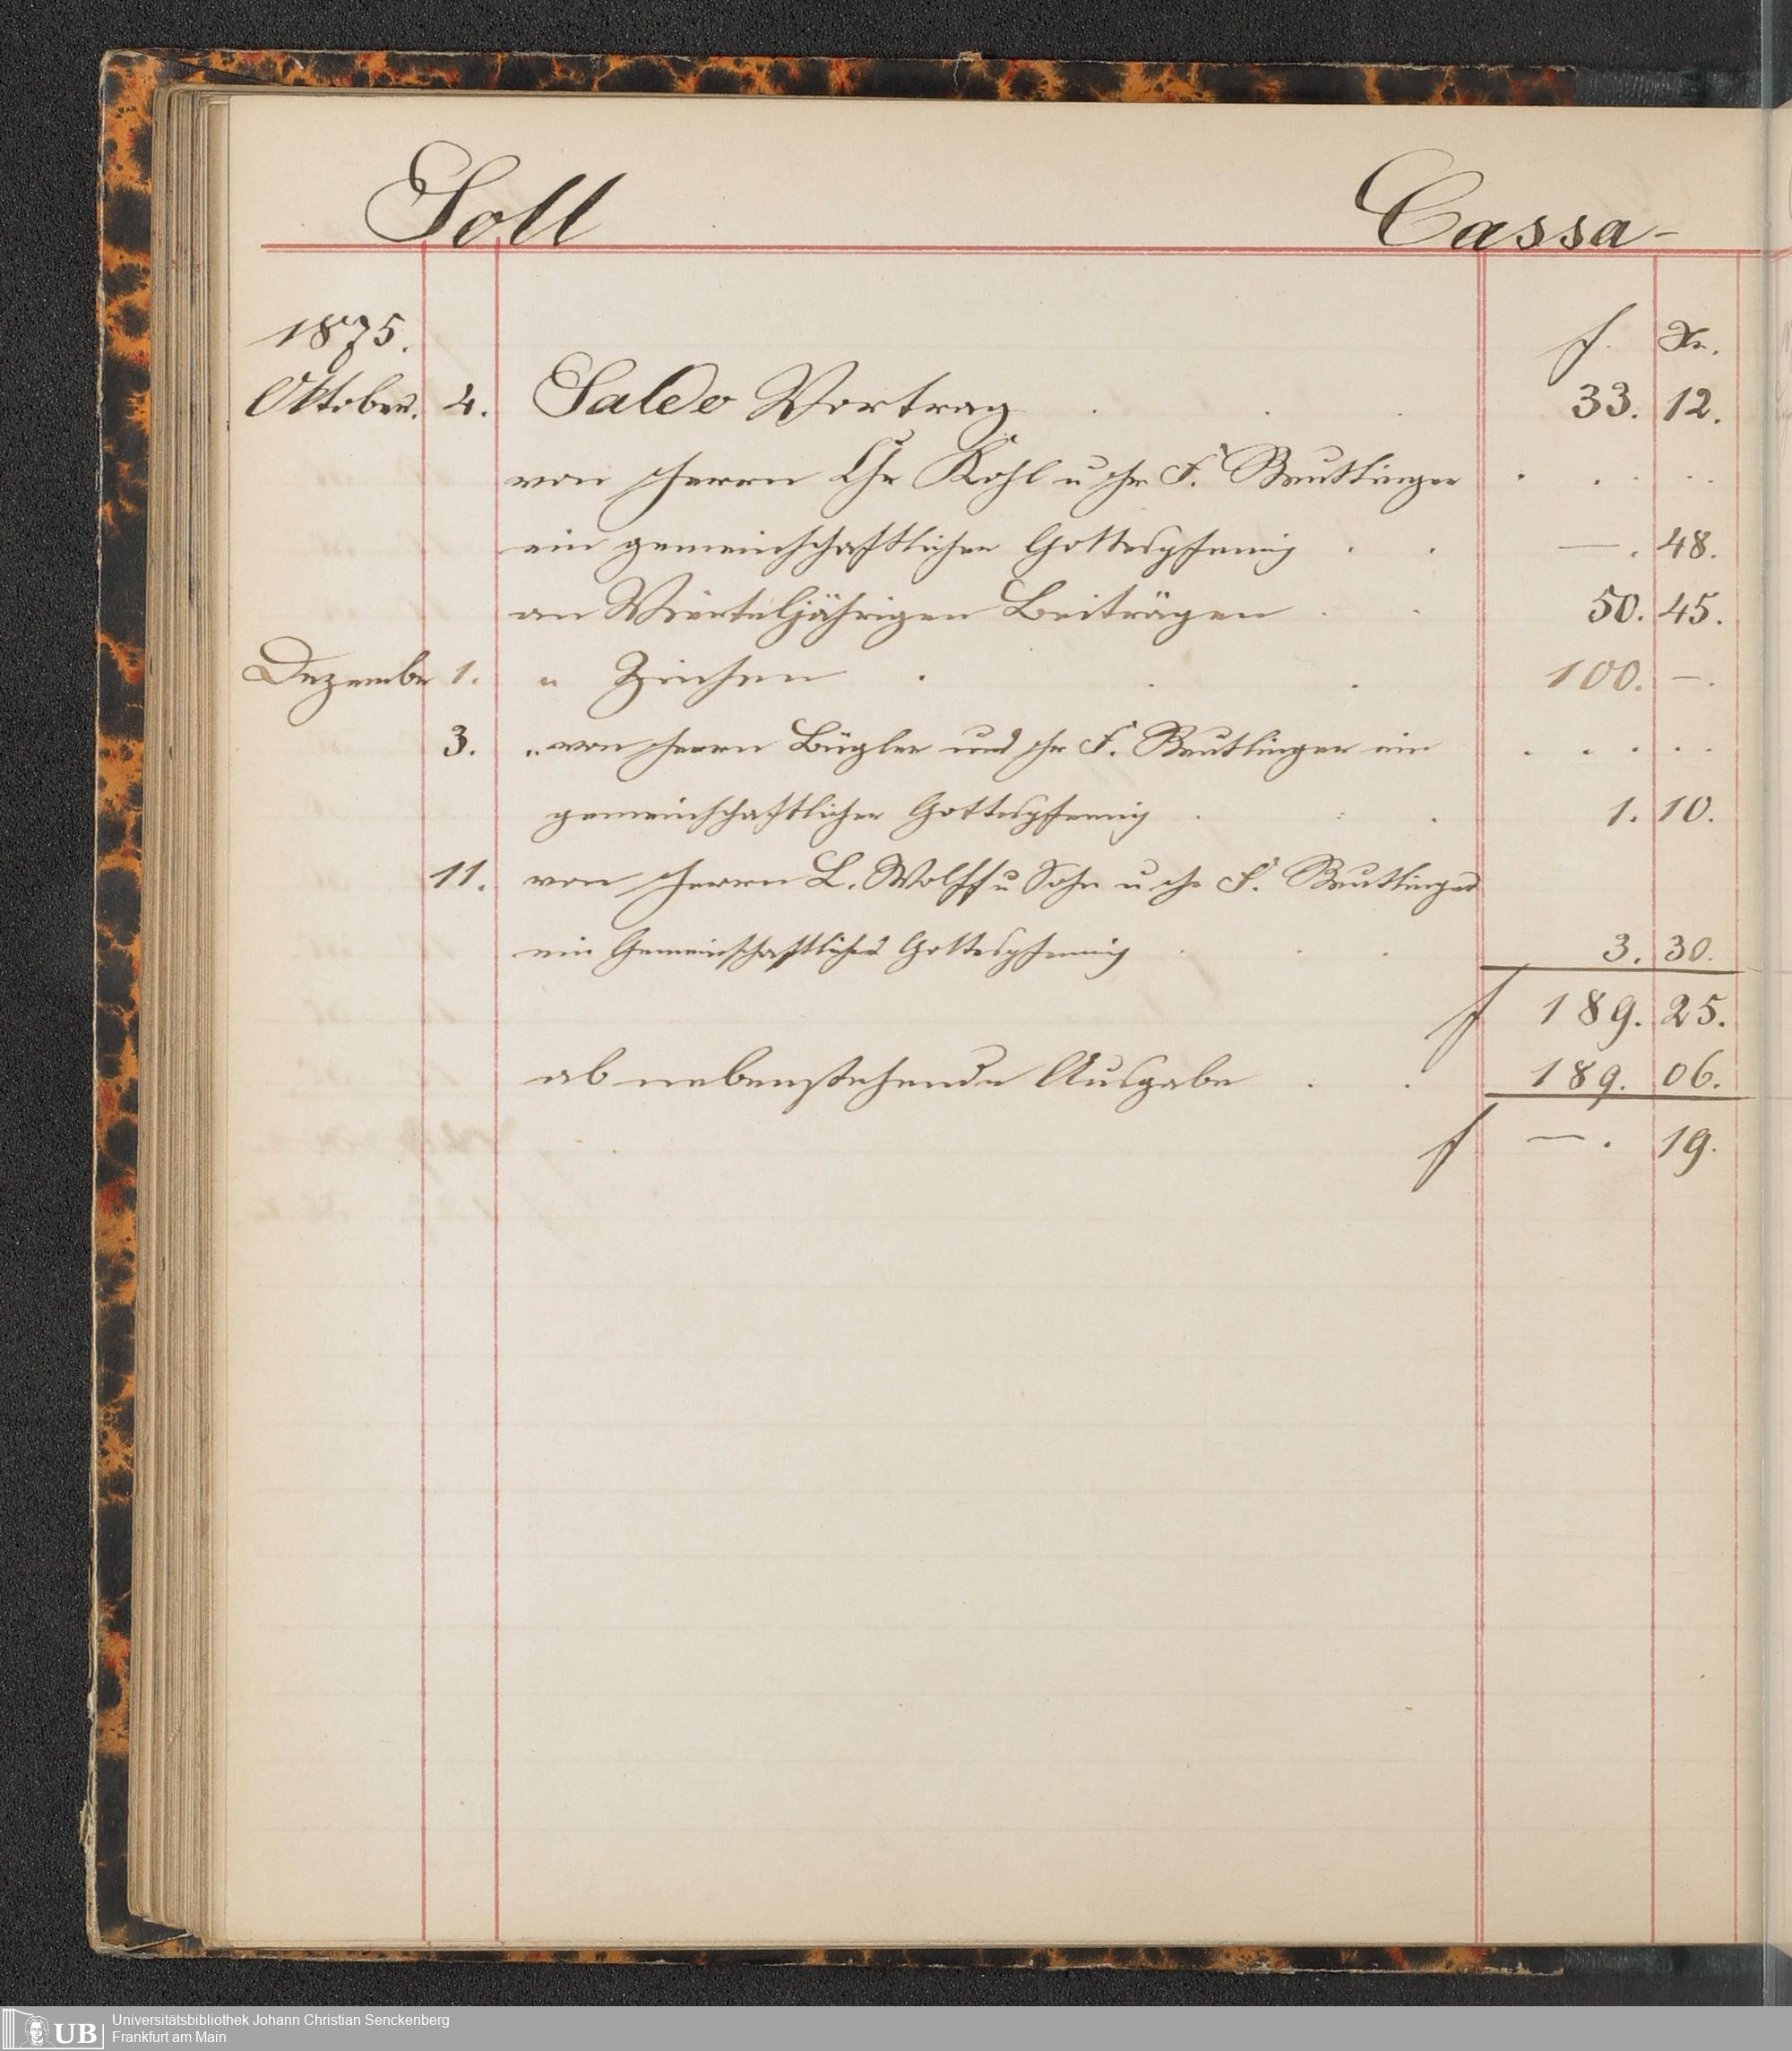 Soll Cassa-
1875. f. Xr.
Oktober. 4. Saldo Vortrag . . . 33. 12.
von Herrn Chr Kohl u Hr F. Reutlinger . . . . .
ein gemeinschaftlicher Gottespfennig . . —. 48.
an Vierteljährigen Beiträgen . . 50. 45.
Dezember 1. " Zinsen . . . 100. —.
3. " von Herrn Bügler und Hr F. Reutlinger ein . . . . .
gemeinschaftlicher Gottespfennig . . . 1. 10.
11. von Herrn L. Wolff u Sohn u Hr F. Reutlinger
ein Gemeinschaftlicher Gottespfennig . . . 3. 30.
f 189. 25.
ab nebenstehende Ausgabe . . 189. 06.
f —. 19.
UB Universitätsbibliothek Johann Christian Senckenberg
Frankfurt am Main